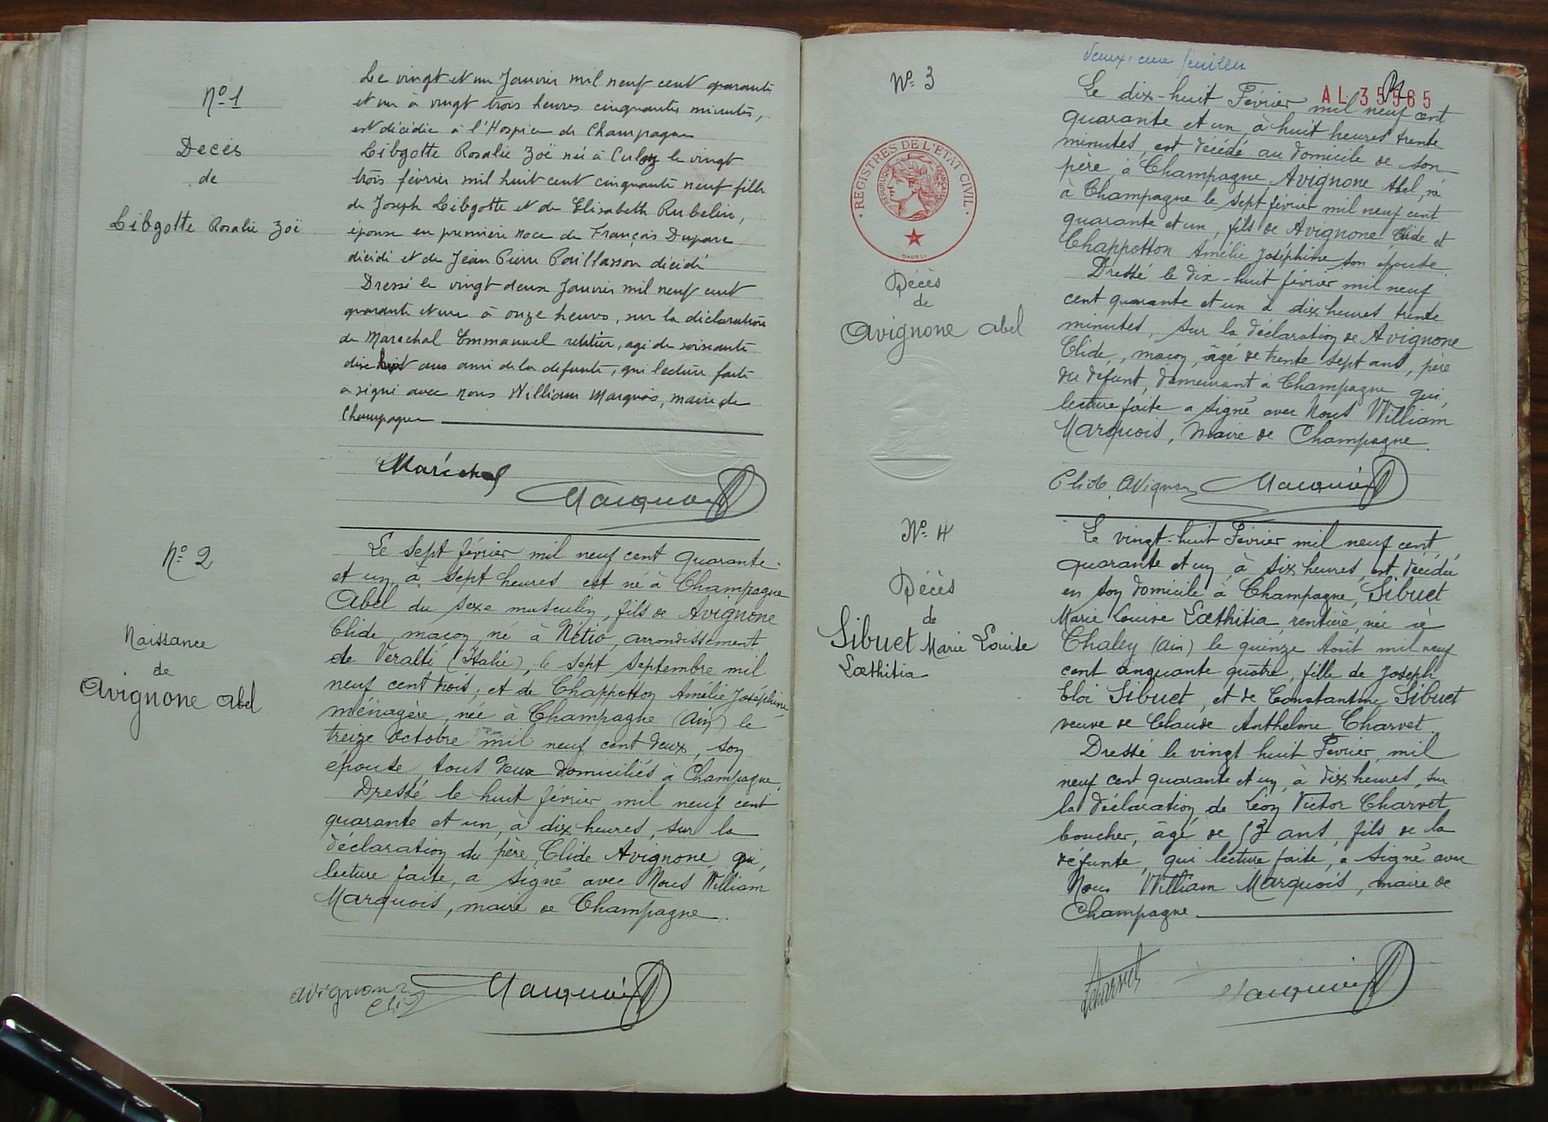 Nº 1
Décès
de
Libgotte Rosalie Zoë
Le vingt et un Janvier mil neuf cent quarante
et un à vingt trois heures cinquantes minutes,
est décédée à l'Hospice de Champagne
Libgotte Rosalie Zoë né à Culoz le vingt
trois février mil huit cent cinquante neuf fille
de Joseph Libgotte et de Elisabeth Rubelin,
épouse en première noce de François Dupare
décédé et de Jean Pierre Poillasson décédé
Dressé le vingt deux Janvier mil neuf cent
quarante et un à onze heures, sur la déclaration
de Maréchal Emmanuel retiré, agé de soixante
dix huit ans ami de la défunte, qui lecture faite
a signé avec nous William Marquois, maire de
Champagne
Maréchal
Marquois
Nº 2
Naissance
de
Avignone Abel
Le sept février mil neuf cent quarante
et un à sept heures est né à Champagne
Abel du sexe masculin, fils de Avignone
Clide, maçon né à Netio, arrondissement
de Veralti (Italie), le sept septembre mil
neuf cent trois, et de Chappotton Amélie Joséphine
ménagère, née à Champagne (Ain) le
treize octobre mil neuf cent deux, son
épouse, tous deux domiciliés à Champagne.
Dressé le huit février mil neuf cent
quarante et un, à dix heures, sur la
déclaration du père, Clide Avignone qui,
lecture faite, a signé avec Nous William
Marquois, maire de Champagne.
Avignone
Clide
Marquois
deuxième feuillet
AL 35565
Nº 3
REGISTRES DE L'ETAT CIVIL
Décès
de
Avignone Abel
Le dix-huit Février mil neuf cent
quarante et un, à huit heures trente
minutes, est décédé au domicile de son
père, à Champagne, Avignone Abel, né
à Champagne le sept février mil neuf cent
quarante et un, fils de Avignone Clide et
Chappotton Amélie Joséphine son épouse.
Dressé le dix-huit février mil neuf
cent quarante et un à dix heures trente
minutes, sur la déclaration de Avignone
Clide, maçon, âgé de trente sept ans, père
du défunt, demeurant à Champagne qui,
lecture faite a signé avec Nous William
Marquois, Maire de Champagne.
Clide Avignone
Marquois
Nº 4
Décès
de
Sibuet Marie Louise
Laethitia
Le vingt-huit Février mil neuf cent
quarante et un à six heures, est décédée
en son domicile à Champagne, Sibuet
Marie Louise Laethitia, rentière, née à
Chaley (Ain) le quinze Août mil neuf
cent cinquante quatre, fille de Joseph
Eloi Sibuet, et de Constantine Sibuet
veuve de Claude Anthelme Charvet
Dressé le vingt huit Février mil
neuf cent quarante et un, à dix heures, sur
la déclaration de Léon Victor Charvet
boucher, âgé de 53 ans, fils de la
défunte, qui lecture faite, a signé avec
Nous William Marquois, maire de
Champagne
Charvet
Marquois